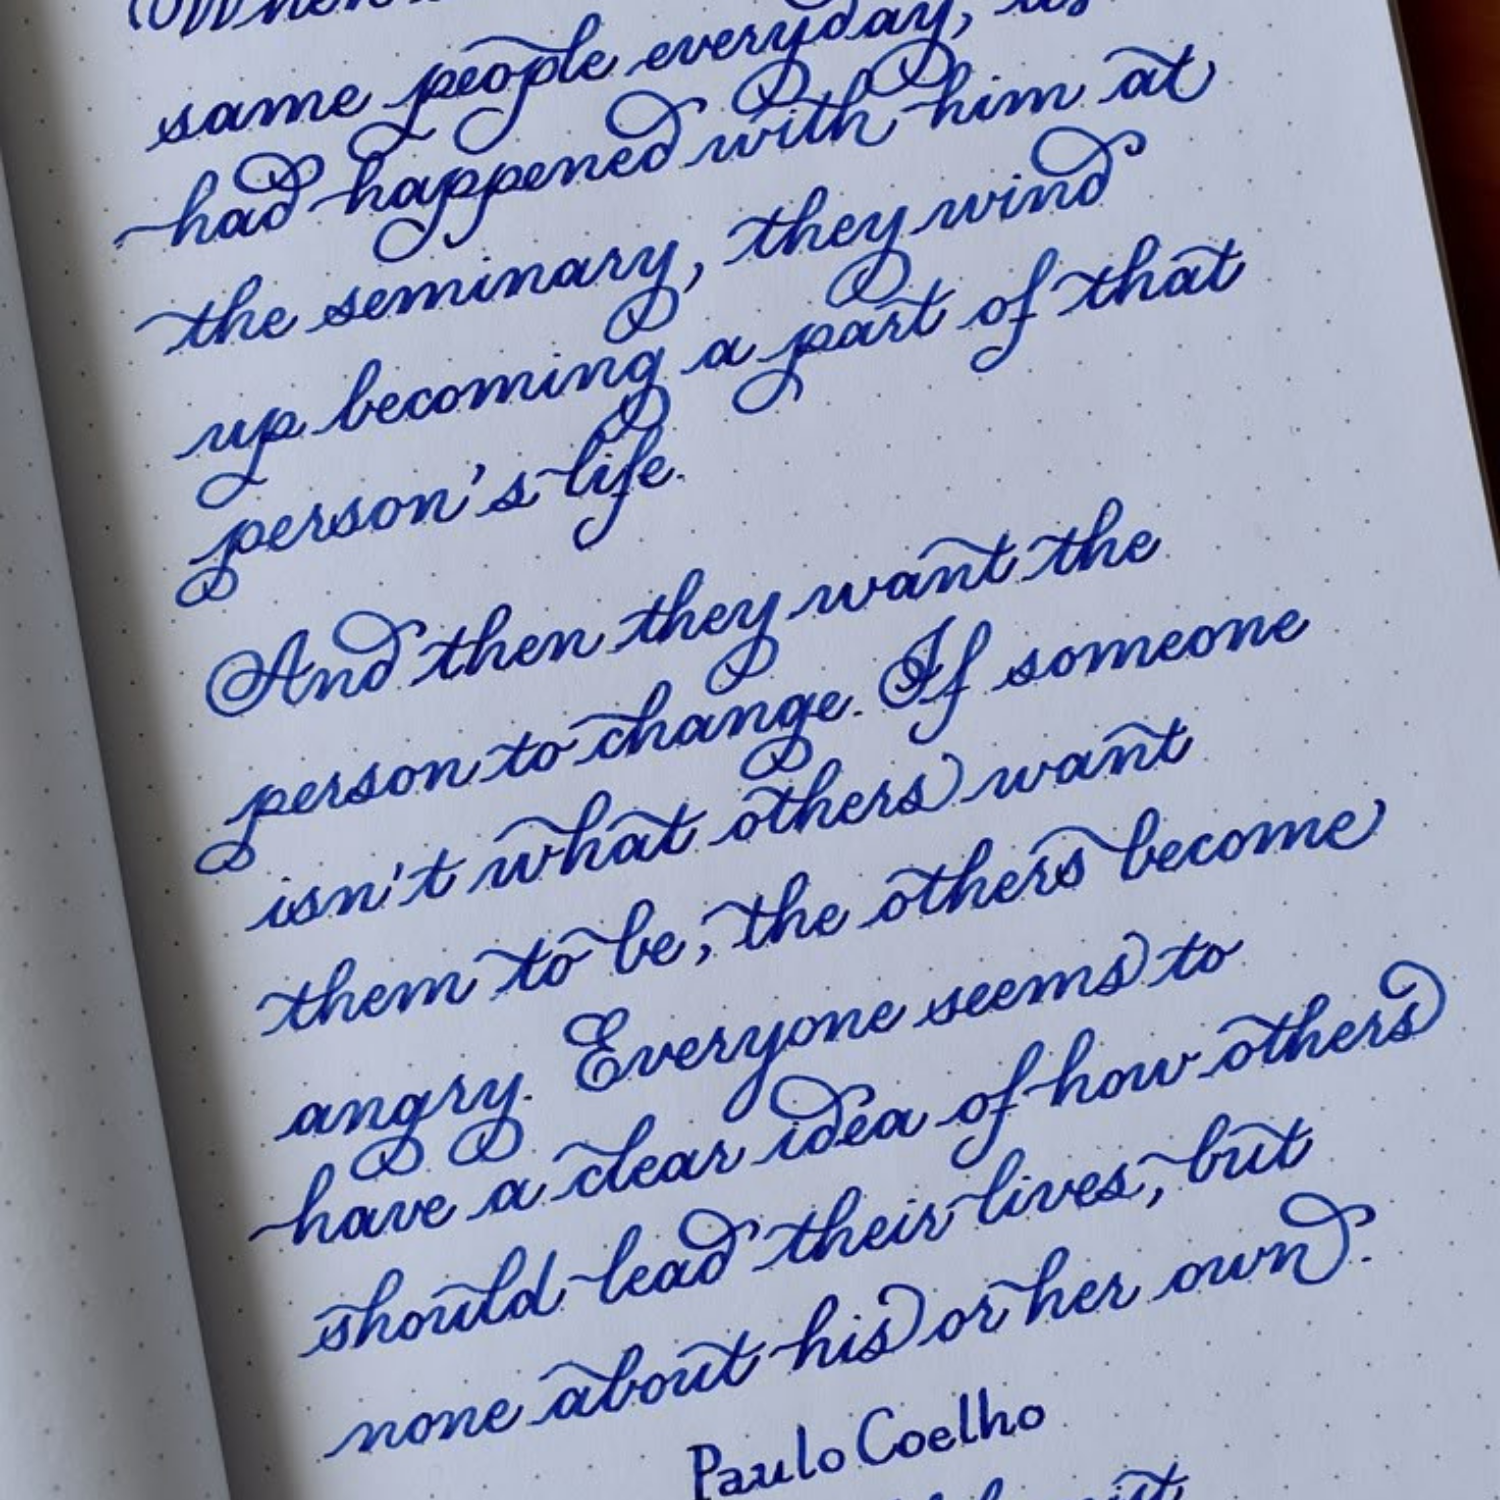 When
same people everyday, as
had happened with him at
the seminary, they wind
up becoming a part of that
person's life.
And then they want the
person to change. If someone
isn't what others want
them to be, the others become
angry. Everyone seems to
have a clear idea of how others
should lead their lives, but
none about his or her own.
Paulo Coelho